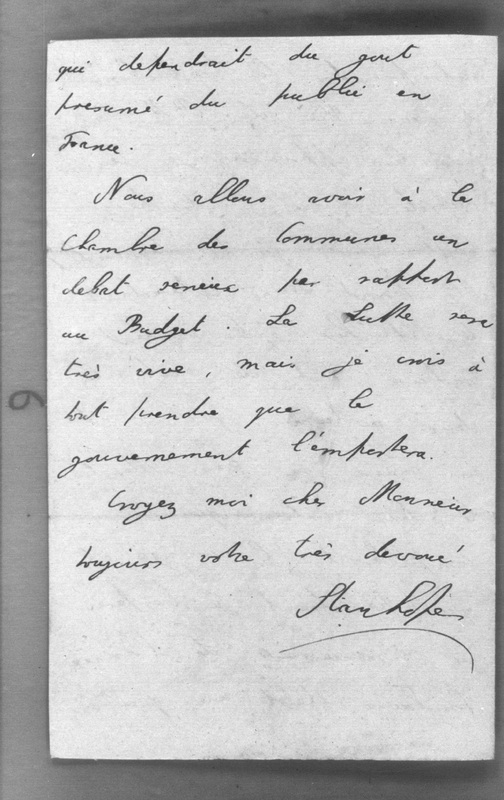 qui dependrait du gout
presumé du public en
France.
Nous allons avoir à la
Chambre des Communes un
debat serieux par rapport
au Budget. La Lutte sera
très vive, mais je crois à
tout prendre que le
gouvernement l'emportera.
Croyez moi cher Monsieur
toujours votre très devoué
Stanhope
9